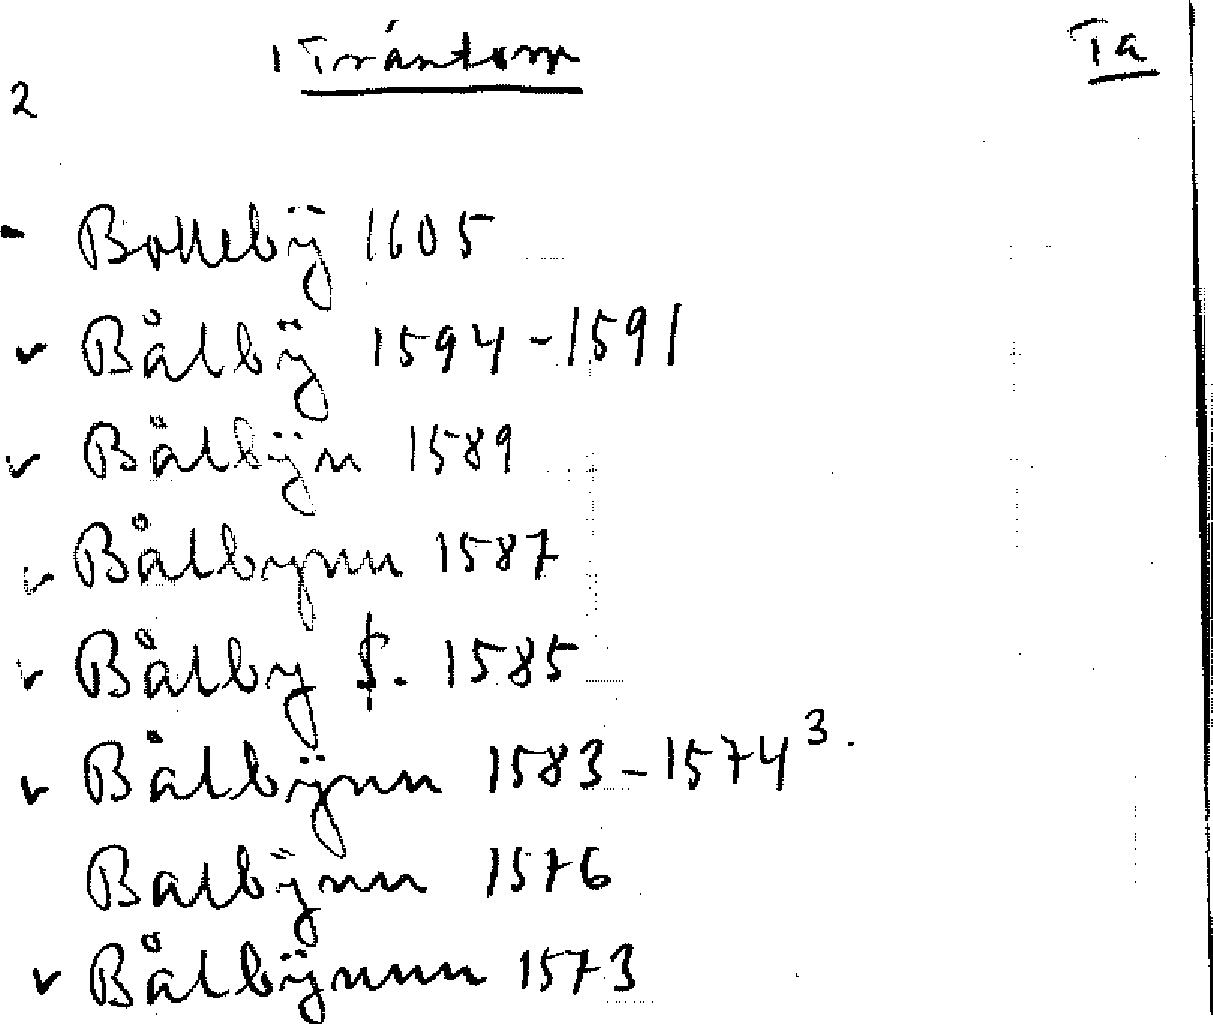 1 Trántorp Ta
2
- Bollebÿ 1605
v Bålbÿ 1594-1591
v Bålbÿn 1589
v Bålbynn 1587
v Bålby f. 1585
v Bålbÿnn 1583-1574 3.
Balbÿnn 1576
v Bålbÿnnn 1573